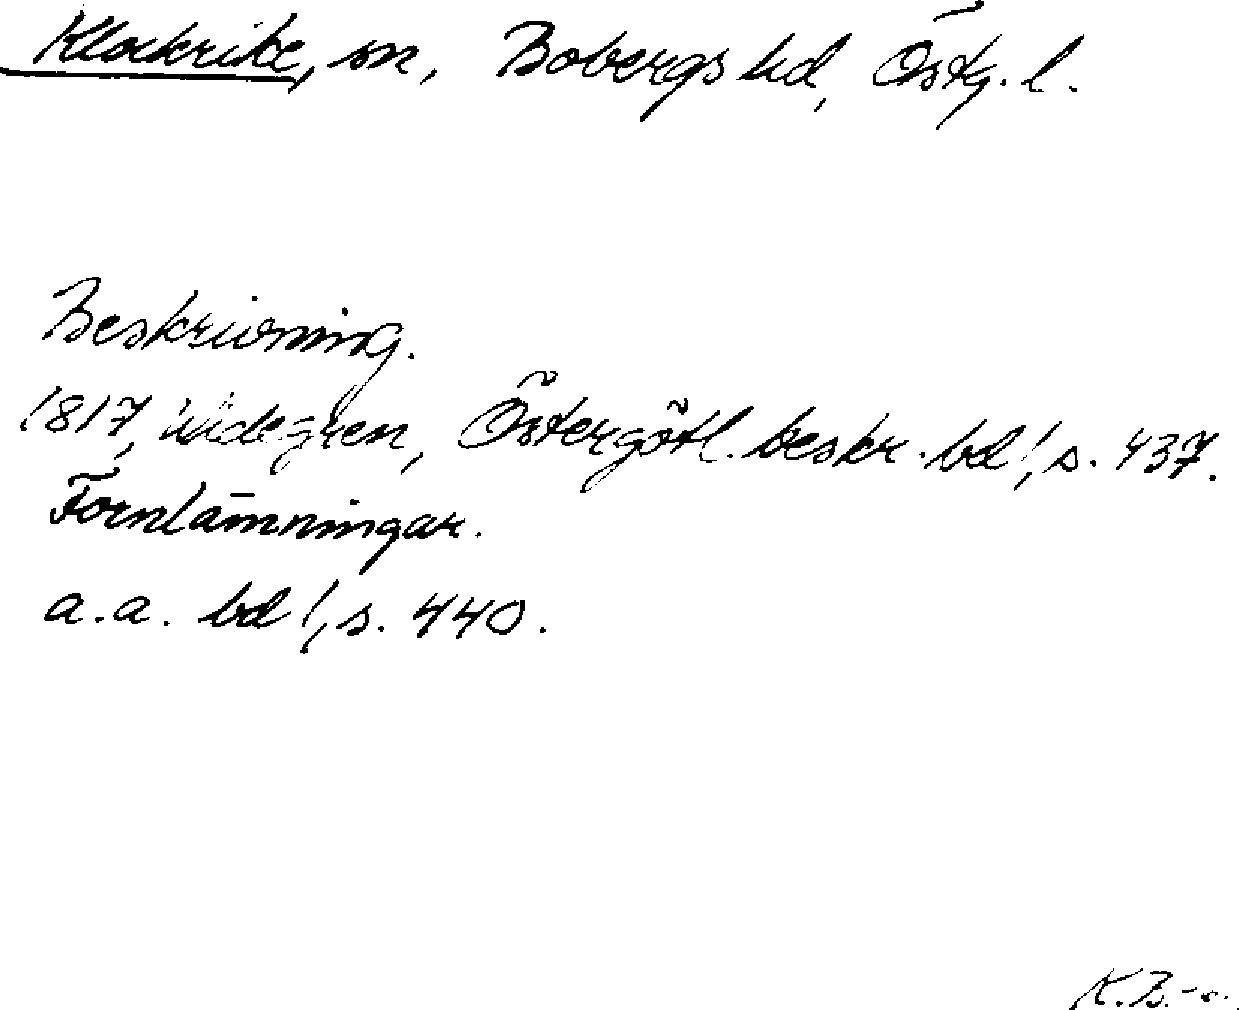 Klockrike, sn, Bobergs hd, Östg. l.
Beskrivning.
1817, Widegren, Östergötl. beskr. bd 1, s. 437.
Fornlämningar.
a.a. bd 1, s. 440.
K.B.